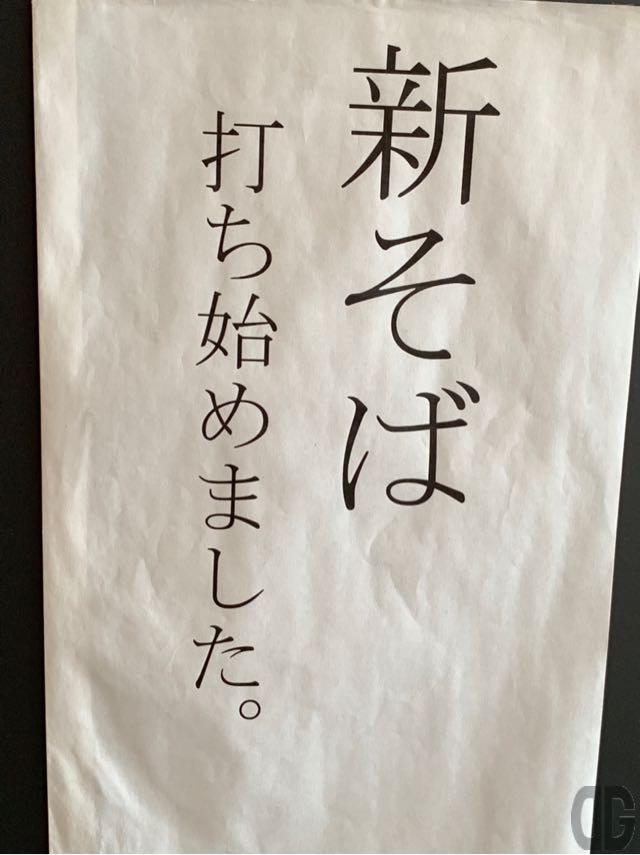 新そば
打ち始めました。